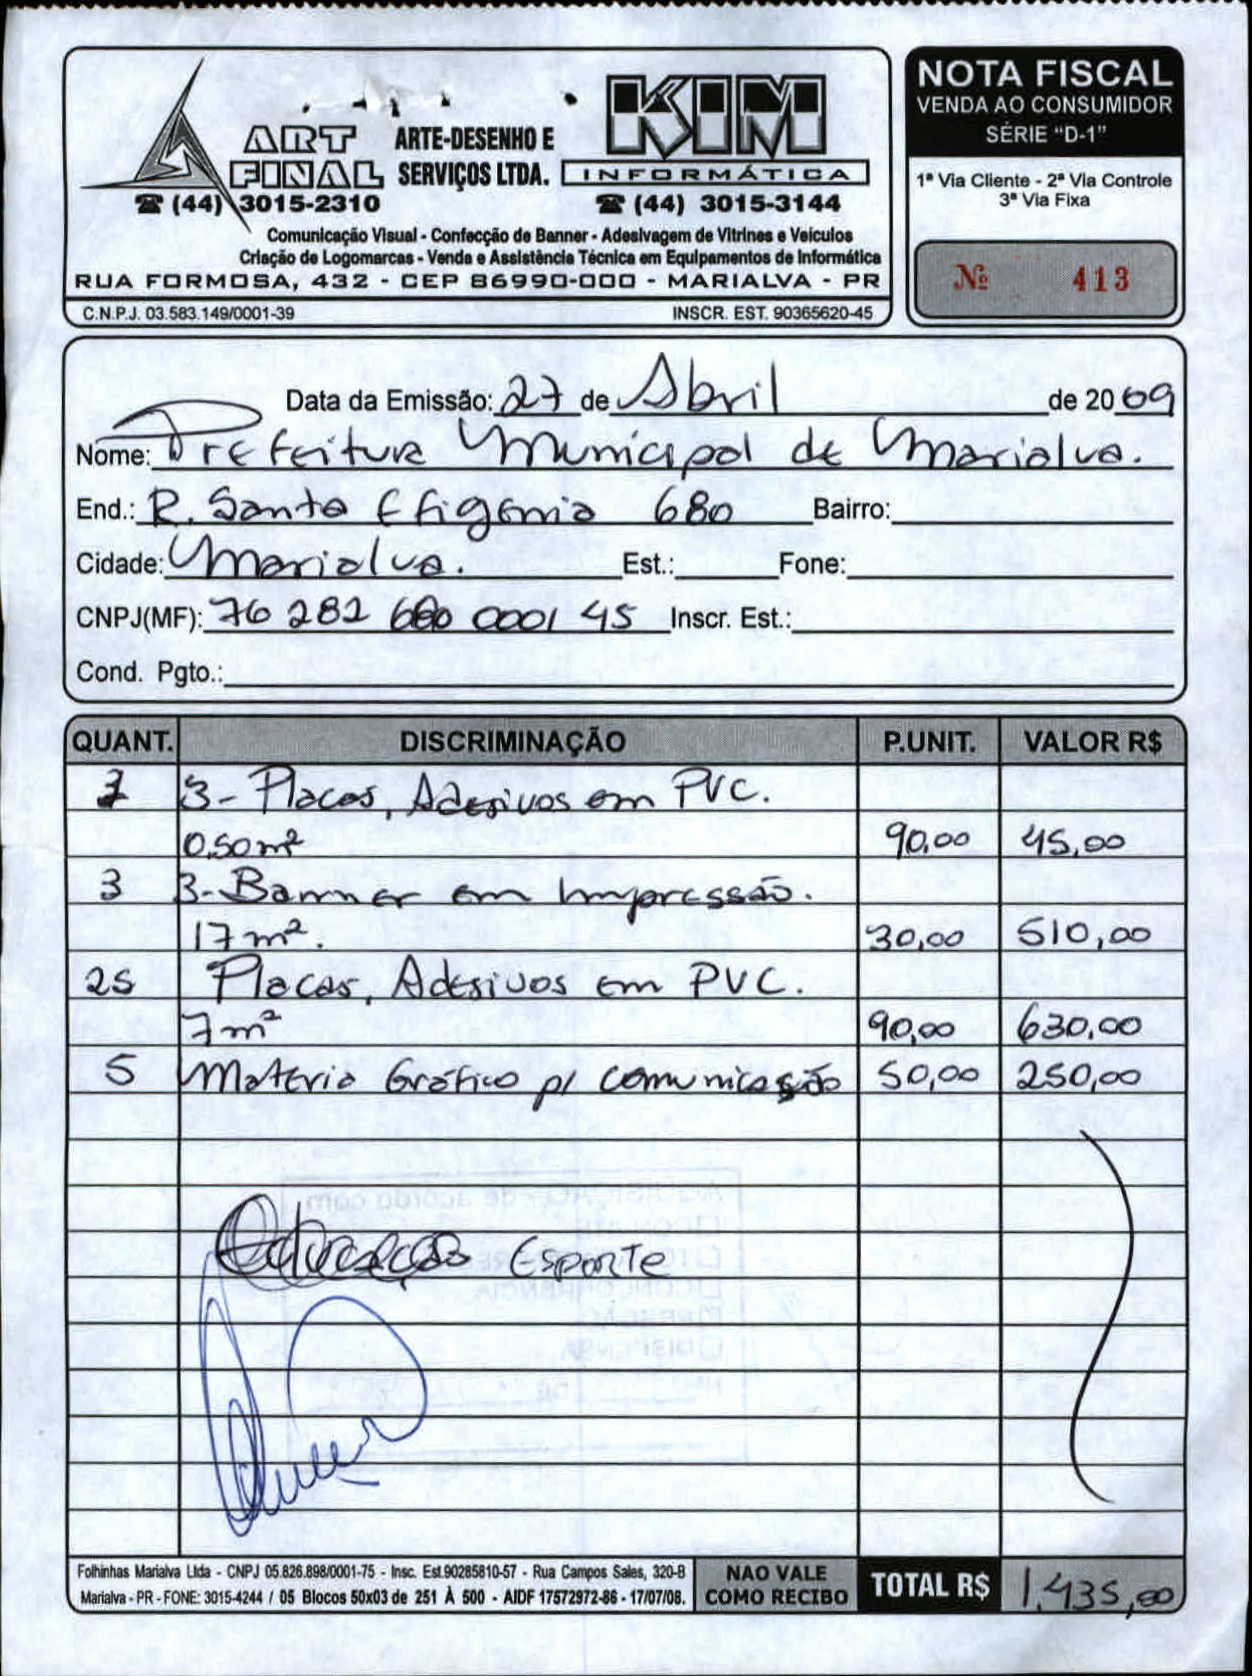 ART FINAL
ARTE-DESENHO E SERVIÇOS LTDA.
KIM INFORMÁTICA
(44) 3015-2310
(44) 3015-3144
Comunicação Visual - Confecção de Banner - Adesivagem de Vitrines e Veiculos
Criação de Logomarcas - Venda e Assistência Técnica em Equipamentos de Informática
RUA FORMOSA, 432 - CEP 86990-000 - MARIALVA - PR
C.N.P.J. 03.583.149/0001-39 INSCR. EST. 90365620-45
NOTA FISCAL
VENDA AO CONSUMIDOR
SÉRIE "D-1"
1ª Via Cliente - 2ª Via Controle
3ª Via Fixa
Nº 413
Data da Emissão: 27 de Abril de 2009
Nome: Prefeitura Municipal de Marialva.
End.: R. Santa Efigênia 680 Bairro:
Cidade: Marialva. Est.: Fone:
CNPJ(MF): 76 282 680 0001 45 Inscr. Est.:
Cond. Pgto.:
QUANT. DISCRIMINAÇÃO P.UNIT. VALOR R$
3- Placas, Adesivos em PVC.
0,50m² 90,00 45,00
3 3-Banner em Impressão.
17m². 30,00 510,00
25 Placas, Adesivos em PVC.
7m² 90,00 630,00
5 Materia Gráfico p/ comunicação 50,00 250,00
AQUISIÇÃO - de acordo com
Educação Esporte
Folhinhas Marialva Ltda - CNPJ 05.826.898/0001-75 - Insc. Est.90285810-57 - Rua Campos Sales, 320-B
Marialva - PR - FONE: 3015-4244 / 05 Blocos 50x03 de 251 À 500 - AIDF 17572972-86 - 17/07/08.
NAO VALE
COMO RECIBO
TOTAL R$ 1.435,00